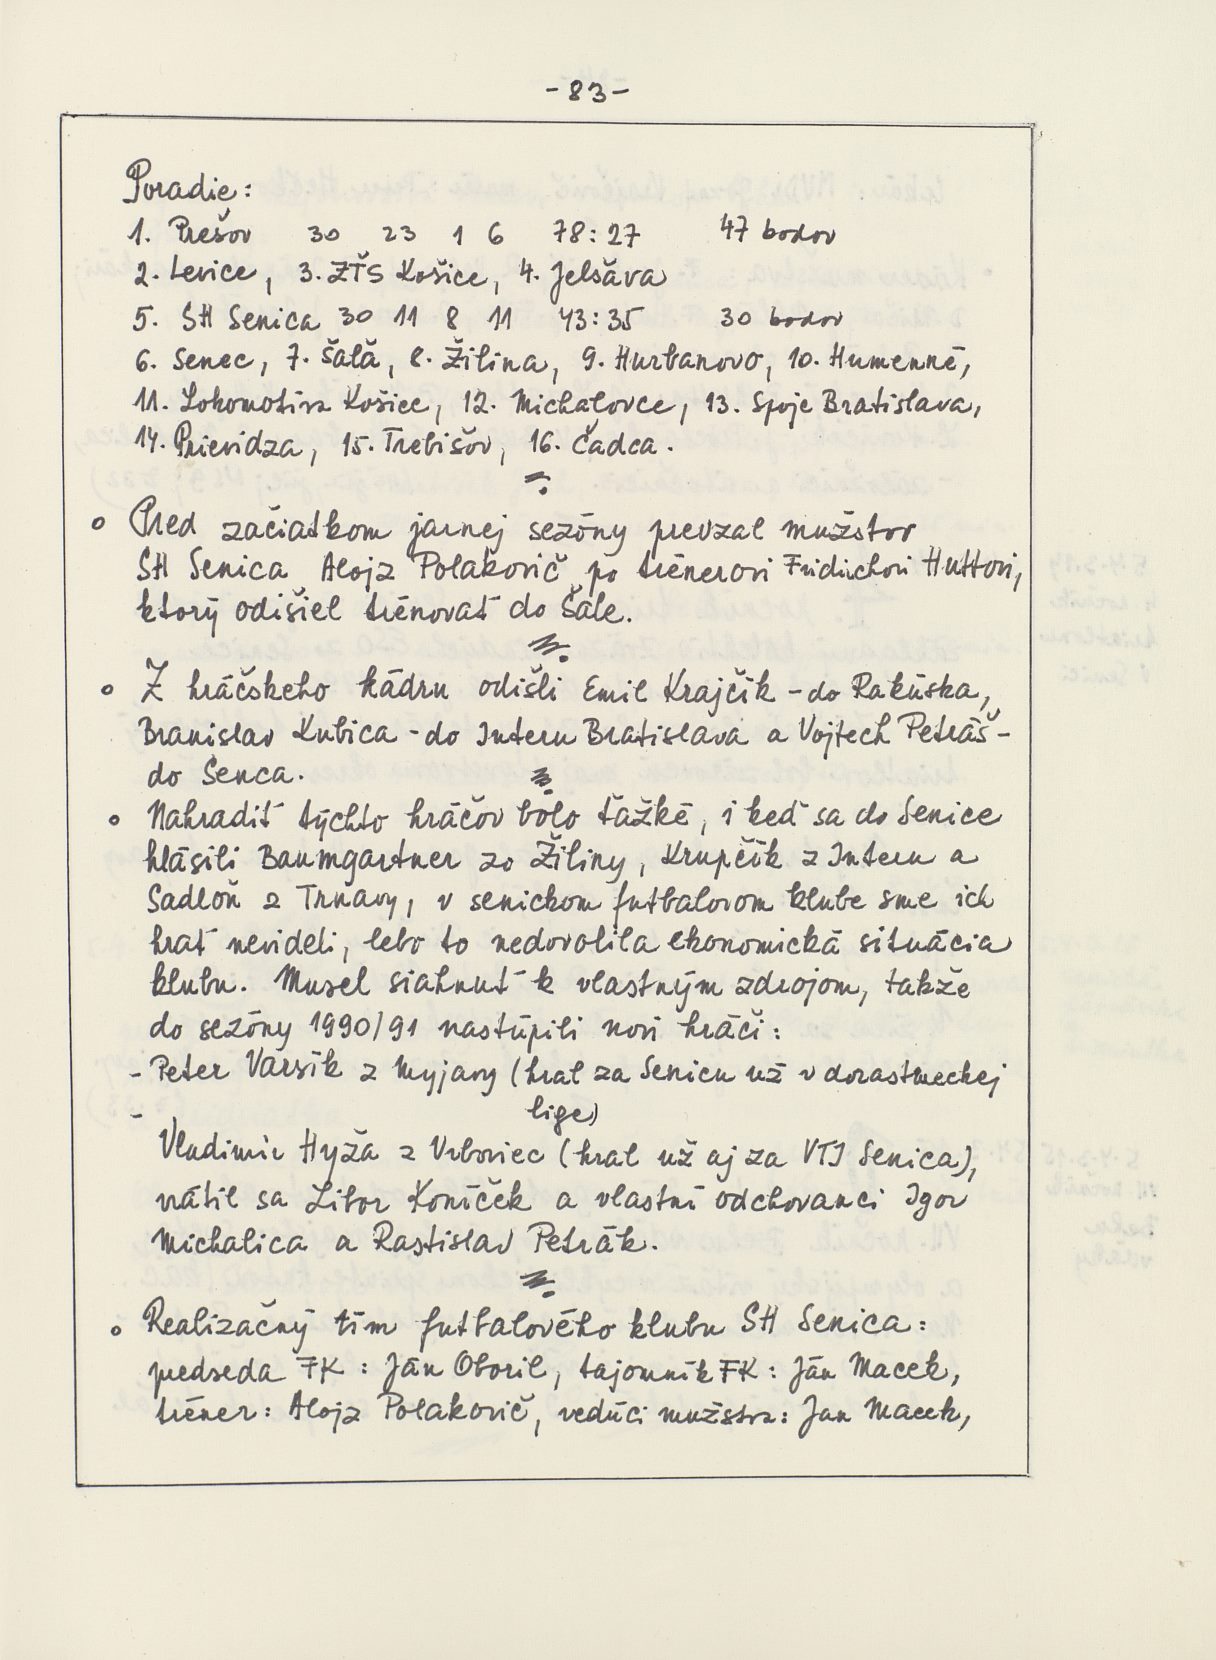 -83-
Poradie:
1. Prešov 30 23 1 6 78:27 47 bodov
2. Levice, 3. ZŤS Košice, 4. Jelšava
5. SH Senica 30 11 8 11 43:35 30 bodov
6. Senec, 7. Šaľa, 8. Žilina, 9. Hurbanovo, 10. Humenné,
11. Lokomotíva Košice, 12. Michalovce, 13. Spoje Bratislava,
14. Prievidza, 15. Trebišov, 16. Čadca.
o Pred začiatkom jarnej sezóny prevzal mužstvo
SH Senica Alojz Polakovič po trénerovi Fridrichovi Huttovi,
ktorý odišiel trénovať do Šale.
o Z hráčskeho kádru odišli Emil Krajčík - do Rakúska,
Branislav Kubica - do Interu Bratislava a Vojtech Petráš -
do Senca.
o Nahradiť týchto hráčov bolo ťažké, i keď sa do Senice
hlásili Baumgartner zo Žiliny, Krupčík z Interu a
Sadloň z Trnavy, v senickom futbalovom klube sme ich
hrať nevideli, lebo to nedovolila ekonomická situácia
klubu. Musel siahnuť k vlastným zdrojom, takže
do sezóny 1990/91 nastúpili noví hráči:
- Peter Varsík z Myjavy (hral za Senicu už v dorasteneckej
lige)
- Vladimír Hyža z Vrboviec (hral už aj za VTJ Senica),
vrátil sa Libor Koníček a vlastní odchovanci Igor
Michalica a Rastislav Petrák.
o Realizačný tím futbalového klubu SH Senica:
predseda FK: Ján Oboril, tajomník FK: Ján Macek,
tréner: Alojz Polakovič, vedúci mužstva: Jan Macek,